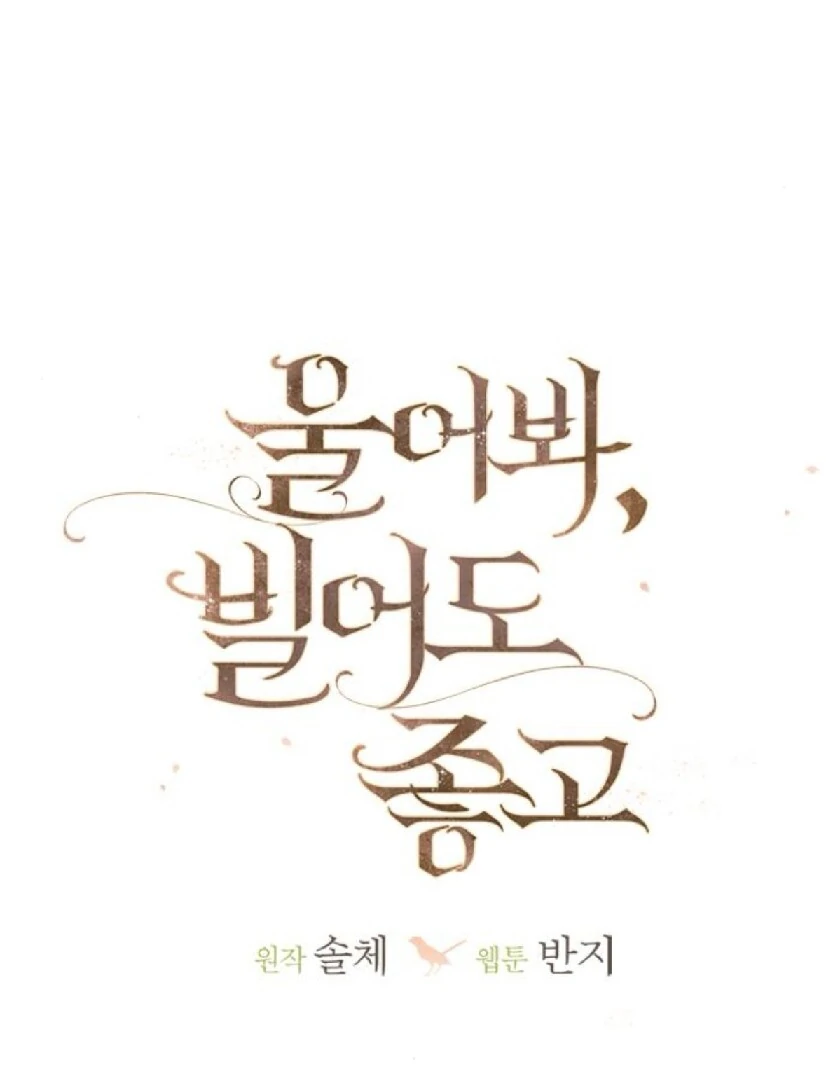 울어봐,
빌어도
좋고
원작 솔체 웹툰 반지